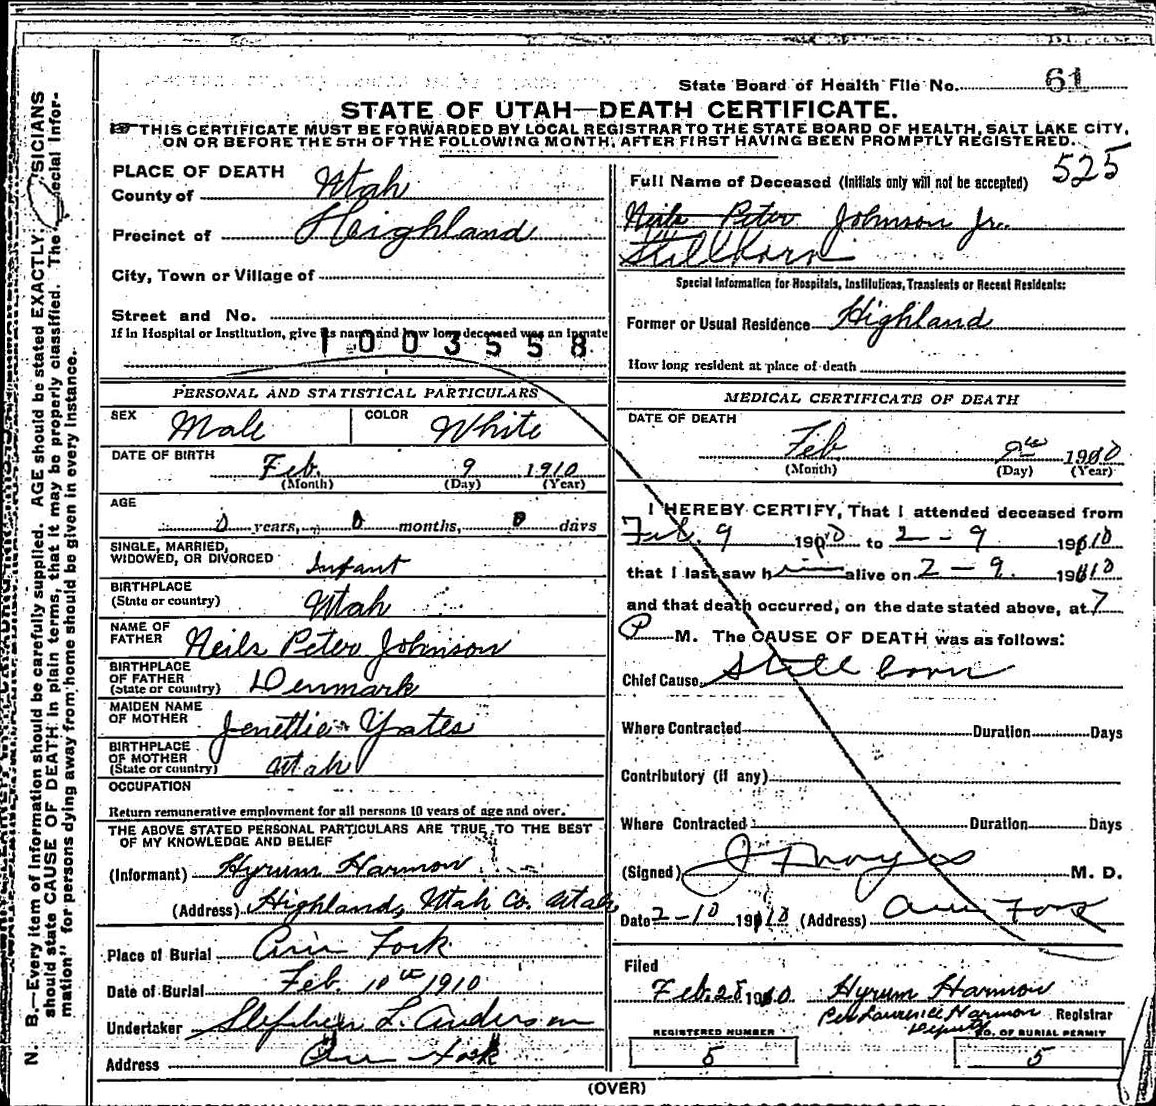 State Board of Health File No. 61
STATE OF UTAH—DEATH CERTIFICATE.
THIS CERTIFICATE MUST BE FORWARDED BY LOCAL REGISTRAR TO THE STATE BOARD OF HEALTH, SALT LAKE CITY,
ON OR BEFORE THE 5TH OF THE FOLLOWING MONTH, AFTER FIRST HAVING BEEN PROMPTLY REGISTERED.
525
PLACE OF DEATH
County of Utah
Precinct of Highland
City, Town or Village of
Street and No.
If in Hospital or Institution, give its name and how long deceased was an inmate
1003558
PERSONAL AND STATISTICAL PARTICULARS
SEX Male COLOR White
DATE OF BIRTH
Feb. 9 1910
(Month) (Day) (Year)
AGE
0 years, 0 months, 0 days
SINGLE, MARRIED,
WIDOWED, OR DIVORCED Infant
BIRTHPLACE
(State or country) Utah
NAME OF
FATHER Neils Peter Johnson
BIRTHPLACE
OF FATHER
(State or country) Denmark
MAIDEN NAME
OF MOTHER Jenettie Yates
BIRTHPLACE
OF MOTHER
(State or country) Utah
OCCUPATION
Return remunerative employment for all persons 10 years of age and over.
THE ABOVE STATED PERSONAL PARTICULARS ARE TRUE TO THE BEST
OF MY KNOWLEDGE AND BELIEF
(Informant) Hyrum Harmon
(Address) Highland, Utah Co. Utah
Place of Burial Am Fork
Date of Burial Feb. 10th 1910
Undertaker Stephen L. Anderson
Address Am Fork
Full Name of Deceased (Initials only will not be accepted)
Neils Peter Johnson Jr.
Stillborn
Special Information for Hospitals, Institutions, Transients or Recent Residents:
Former or Usual Residence Highland
How long resident at place of death
MEDICAL CERTIFICATE OF DEATH
DATE OF DEATH
Feb 9th 1910
(Month) (Day) (Year)
I HEREBY CERTIFY, That I attended deceased from
Feb. 9 1910 to 2-9 1910
that I last saw him alive on 2-9. 1910
and that death occurred, on the date stated above, at 7
P M. The CAUSE OF DEATH was as follows:
Chief Cause Still born
Where Contracted Duration Days
Contributory (if any)
Where Contracted Duration Days
(Signed) M. D.
Date 2-10 1910 (Address) Am Fork
Filed
Feb. 28 1910 Hyrum Harmon
Per Laurence Harmon Registrar
Deputy
REGISTERED NUMBER NO. OF BURIAL PERMIT
5 5
(OVER)
N. B.—Every item of information should be carefully supplied. AGE should be stated EXACTLY. PHYSICIANS
should state CAUSE OF DEATH in plain terms, that it may be properly classified. The "Special Infor-
mation" for persons dying away from home should be given in every instance.